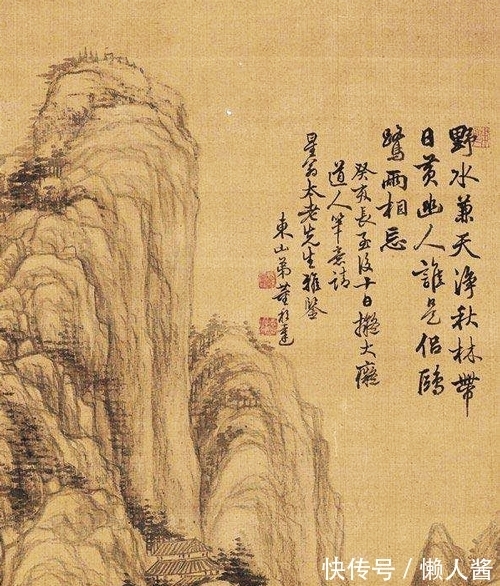 野水兼天淨秋林帶
日黃幽人誰是侶鷗
鷺兩相忘
癸亥長至後十日擬大癡
道人筆意請
星翁太老先生雅鑒
東山弟董邦達
快传号／懒人酱